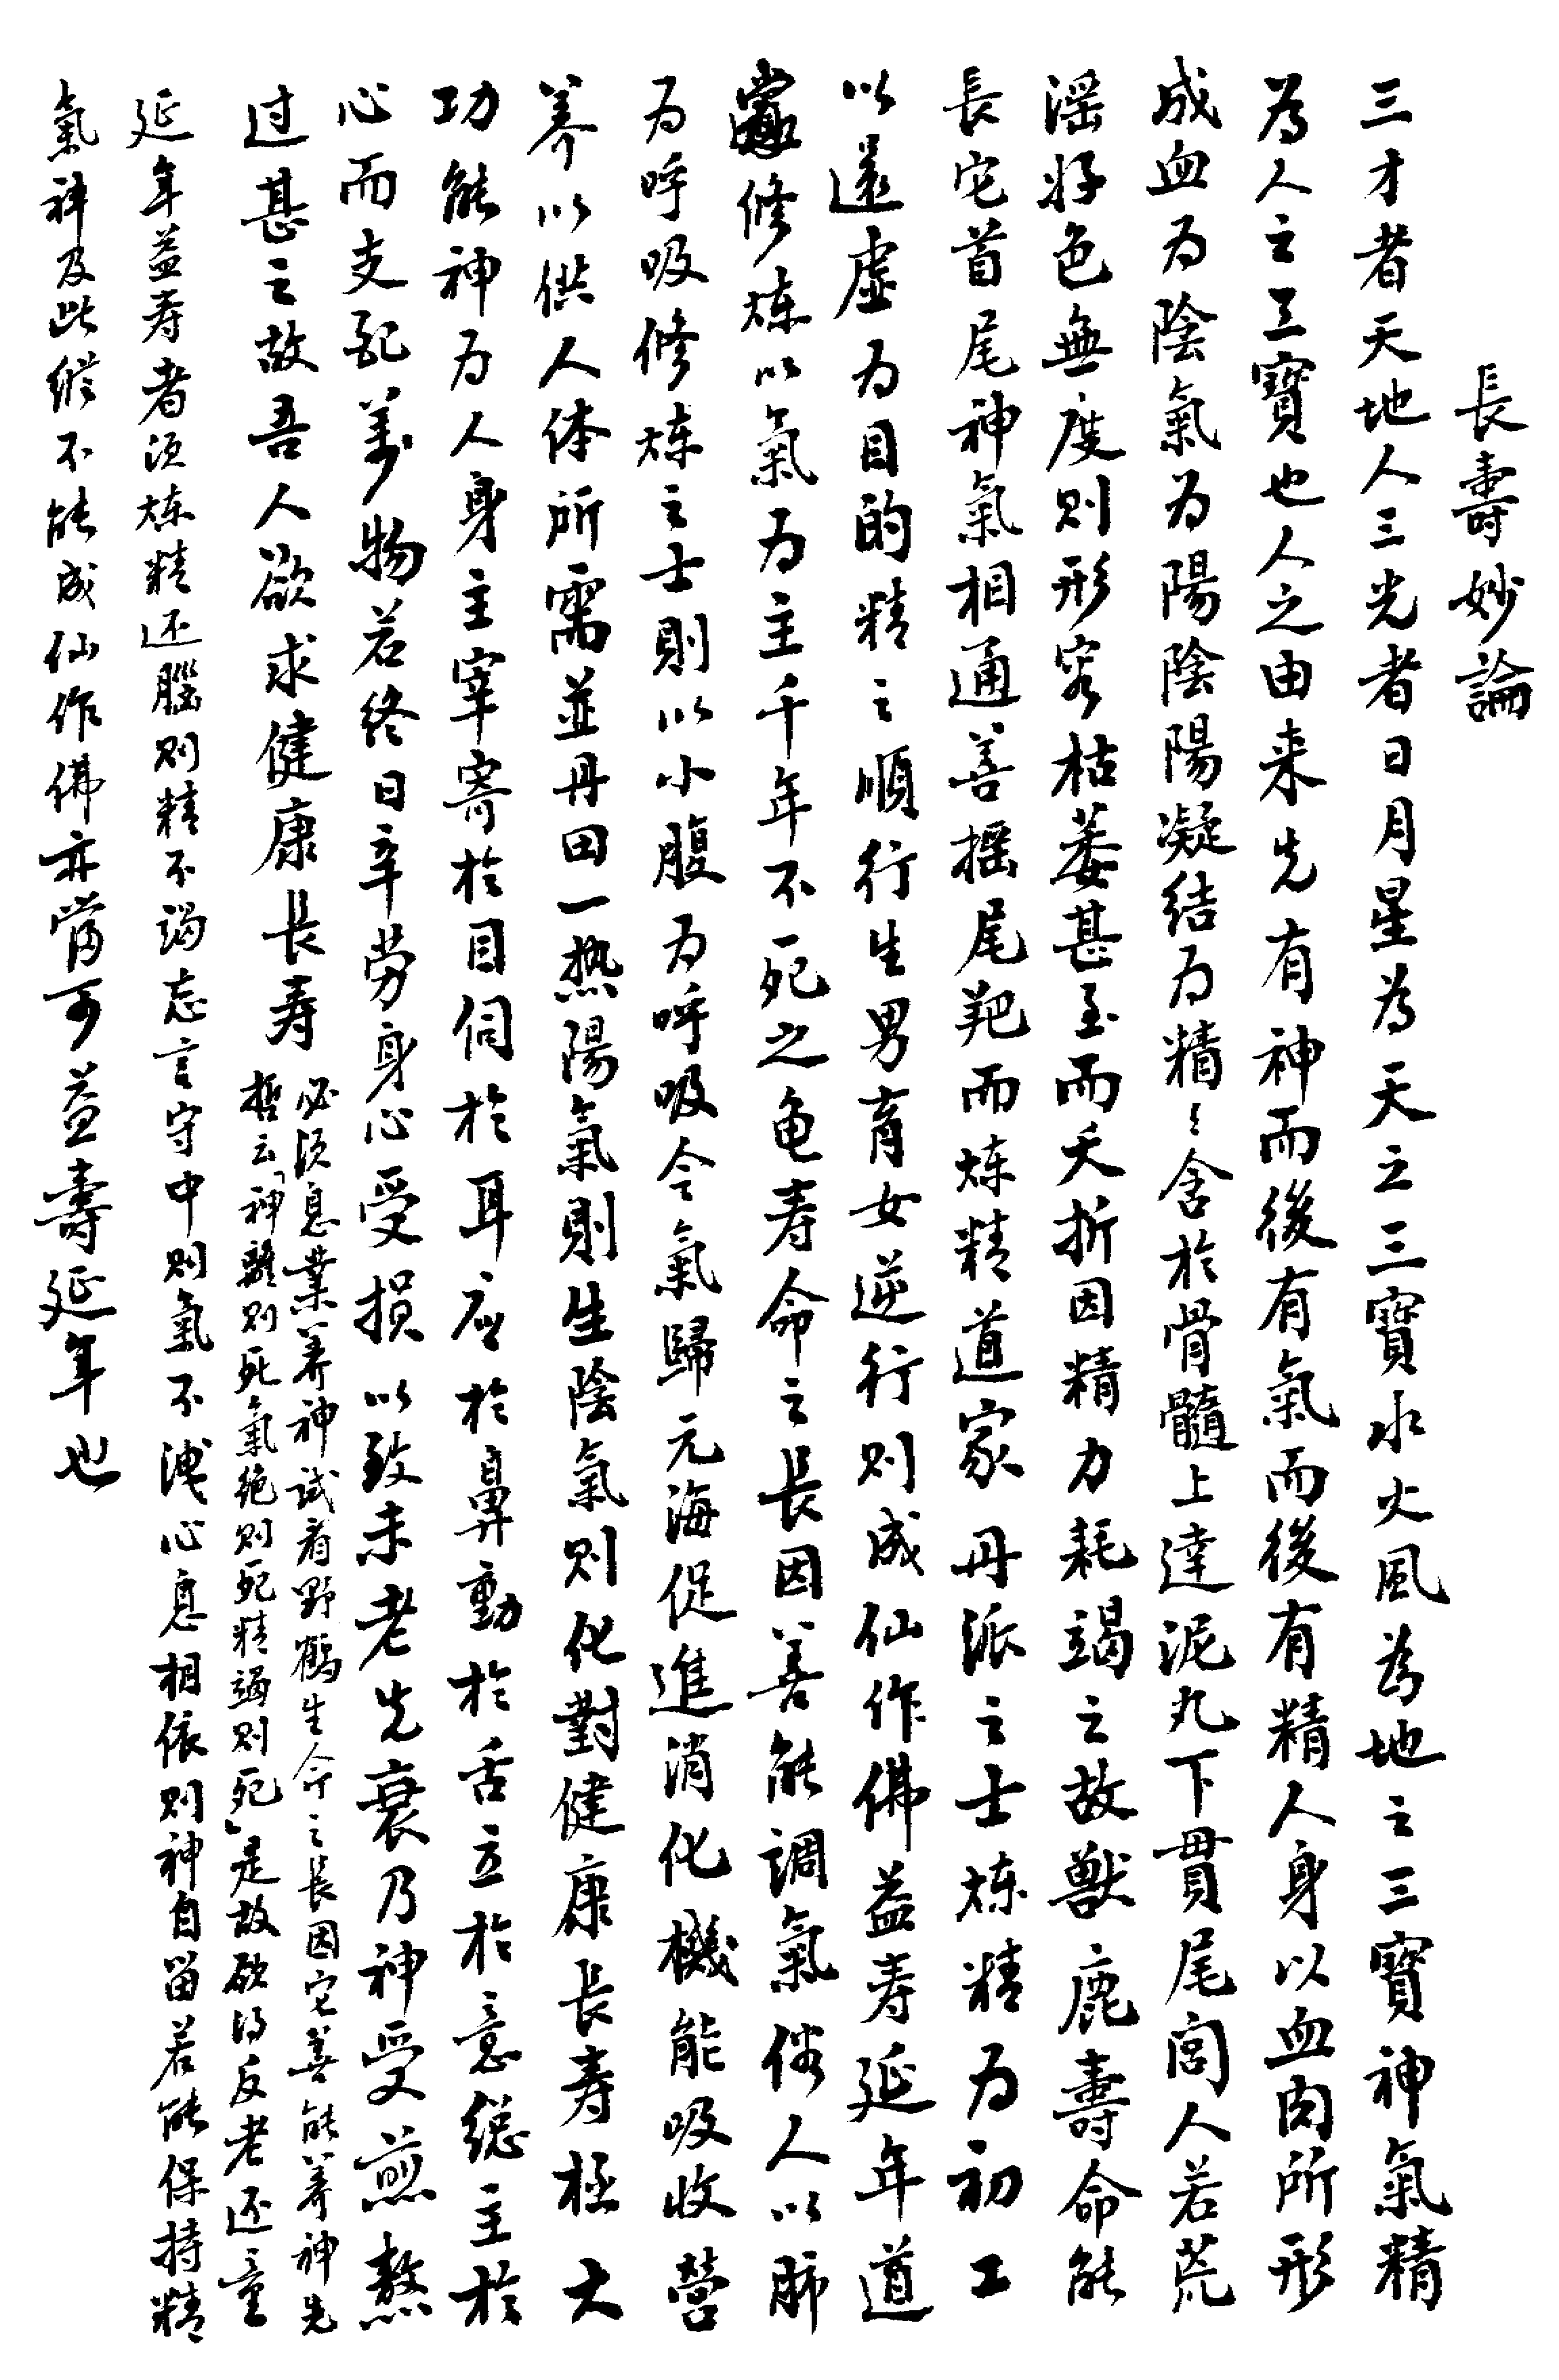 長壽妙論
三才者天地人三光者日月星為天之三寶水火風為地之三寶神氣精
為人之三寶也人之由来先有神而後有氣而後有精人身以血肉所形
成血为陰氣为陽陰陽凝結为精々含於骨髓上達泥丸下貫尾闾人若荒
淫好色無度则形容枯萎甚至而夭折因精力耗竭之故獸鹿壽命能
長它首尾神氣相通善摇尾羓而炼精道家丹派之士炼精为初工
以還虚为目的精之順行生男育女逆行则成仙作佛益寿延年道
家修炼以氣为主千年不死之龟寿命之長因善能調氣俗人以肺
为呼吸修炼之士則以小腹为呼吸令氣歸元海促進消化機能吸收營
养以供人体所需並丹田一热陽氣則生陰氣则化對健康長寿极大
功能神为人身主宰寄於目伺於耳应於鼻動於舌立於意総主於
心而支配萬物若终日辛劳身心受損以致未老先衰乃神受煎熬
过甚之故吾人欲求健康長寿
必须息業养神试看野鶴生命之長因它善能养神先
哲云「神離则死氣绝则死精竭则死」是故欲得反老还童
延年益寿者须炼精还腦则精不竭忘言守中则氣不洩心息相依则神自留若能保持精
氣神及此縱不能成仙作佛亦當可益壽延年也